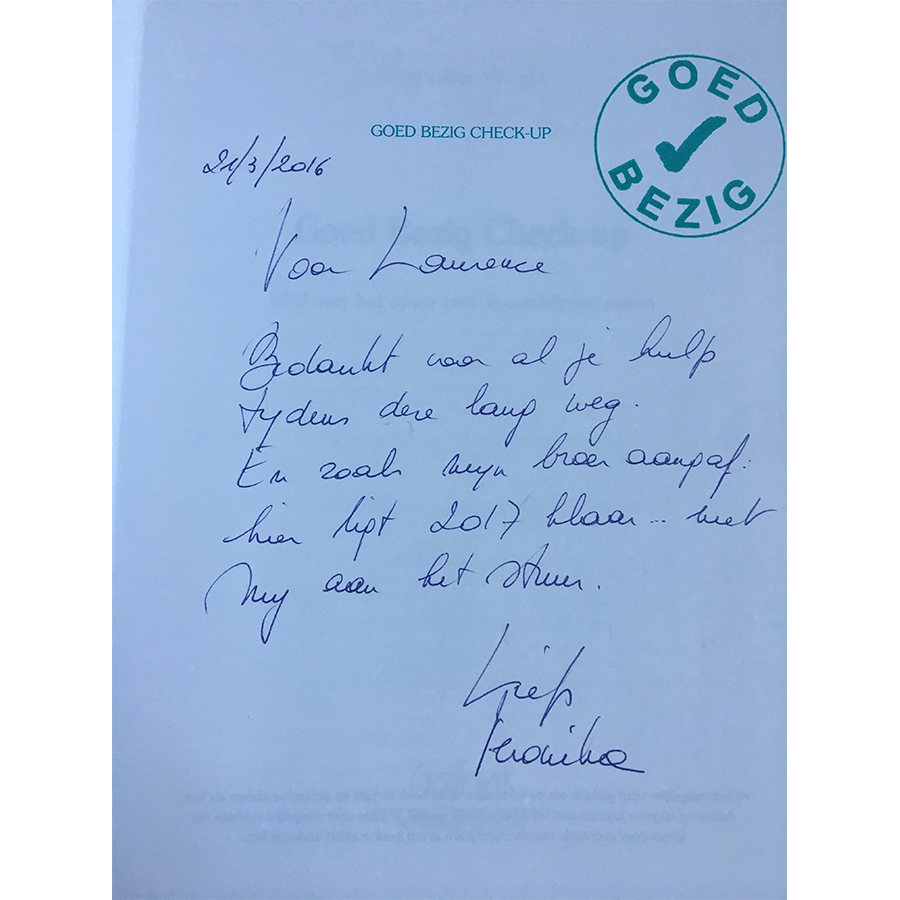 GOED BEZIG
GOED BEZIG CHECK-UP
21/3/2016
Voor Laurence
Bedankt voor al je hulp
tijdens deze lang weg.
En zoals mijn broer aangaf:
hier ligt 2017 klaar... met
mij aan het stuur.
Liefs
Veronika